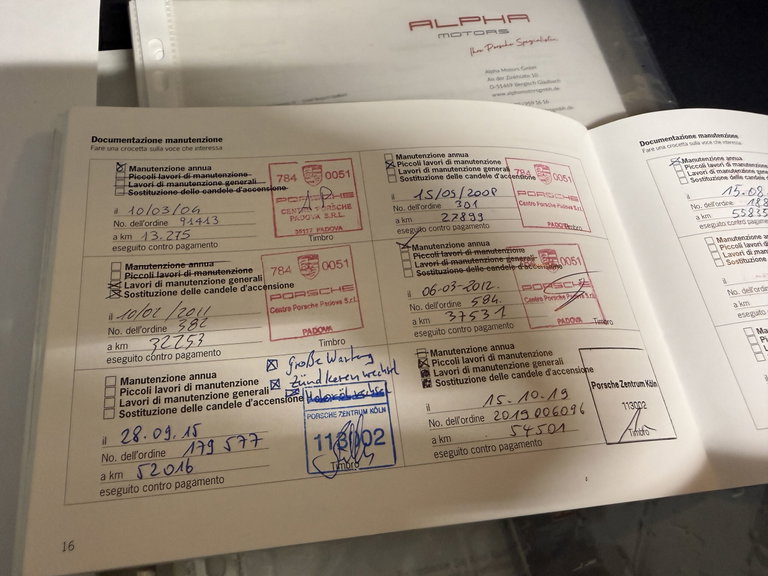 ALPHA
MOTORS
Ihre Porsche Spezialisten
Alpha Motors GmbH
An der Zinkhütte 10
D-51469 Bergisch Gladbach
Documentazione manutenzione
Fare una crocetta sulla voce che interessa
Manutenzione annua
Piccoli lavori di manutenzione
Lavori di manutenzione generali
Sostituzione delle candele d'accensione
784 0051
PORSCHE
CENTRO PORSCHE
PADOVA S.R.L.
35127 PADOVA
Timbro
il 10/03/04
No. dell'ordine 91413
a km 13.275
eseguito contro pagamento
Manutenzione annua
Piccoli lavori di manutenzione
Lavori di manutenzione generali
Sostituzione delle candele d'accensione
784 0051
PORSCHE
Centro Porsche Padova S.r.l.
PADOVA
Timbro
il 15/09/2008
No. dell'ordine 301
a km 27899
eseguito contro pagamento
Manutenzione annua
Piccoli lavori di manutenzione
Lavori di manutenzione generali
Sostituzione delle candele d'accensione
784 0051
PORSCHE
Centro Porsche Padova S.r.l.
PADOVA
Timbro
il 10/02/2011
No. dell'ordine 382
a km 32253
eseguito contro pagamento
Manutenzione annua
Piccoli lavori di manutenzione
Lavori di manutenzione generali
Sostituzione delle candele d'accensione
0051
PORSCHE
Centro Porsche Padova S.r.l.
PADOVA
Timbro
il 06-03-2012.
No. dell'ordine 584.
a km 37531
eseguito contro pagamento
Manutenzione annua
Piccoli lavori di manutenzione
Lavori di manutenzione generali
Sostituzione delle candele d'accensione
Große Wartung
Zündkerzenwechsel
PORSCHE ZENTRUM KÖLN
113002
Timbro
il 28.09.15
No. dell'ordine 179577
a km 52016
eseguito contro pagamento
Manutenzione annua
Piccoli lavori di manutenzione
Lavori di manutenzione generali
Sostituzione delle candele d'accensione
Porsche Zentrum Köln
113002
Timbro
il 15.10.19
No. dell'ordine 2019006096
a km 54501
eseguito contro pagamento
16
Documentazione manutenzione
Fare una crocetta sulla voce che interessa
Manutenzione
Piccoli lavori
Lavori di
Sostituzione
il 15.08.
No. dell'ordine
a km 55835
eseguito contro
Manutenzione
Piccoli
Lavori
Sostituz
il
No. dell'ordine
a km
eseguito contro